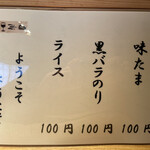 味たま 100円
黒バラのり 100円
ライス 100円
ようこそ